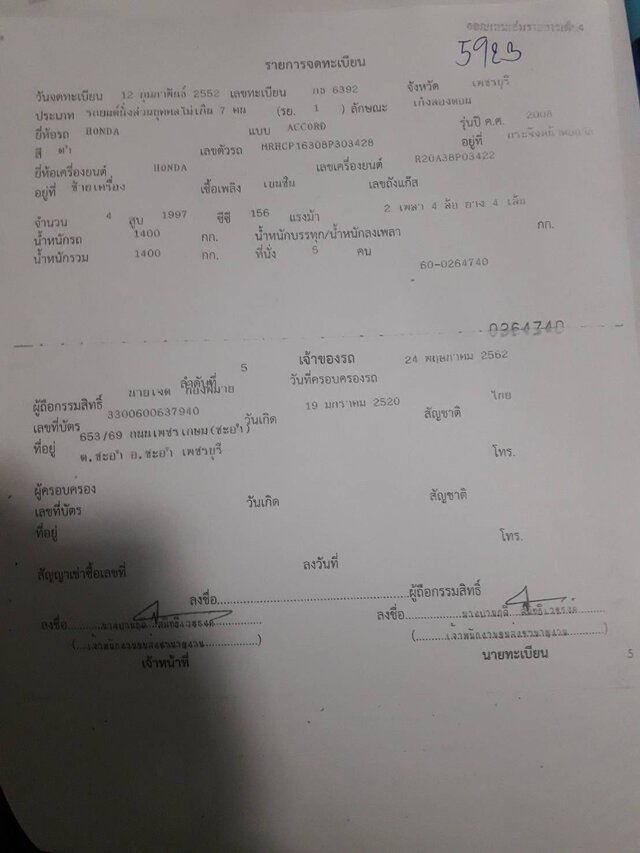 5923
รายการจดทะเบียน
วันจดทะเบียน 12 กุมภาพันธ์ 2552 เลขทะเบียน กธ 6392 จังหวัด เพชรบุรี
ประเภท รถยนต์นั่งส่วนบุคคลไม่เกิน 7 คน (รย. 1 ) ลักษณะ เก๋งสองตอน
ยี่ห้อรถ HONDA แบบ ACCORD รุ่นปี ค.ศ. 2008
สี ดำ เลขตัวรถ MRHCP16308P303428 อยู่ที่
ยี่ห้อเครื่องยนต์ HONDA เลขเครื่องยนต์ R20A38P03422
อยู่ที่ ซ้ายเครื่อง เชื้อเพลิง เบนซิน เลขถังแก๊ส
จำนวน 4 สูบ 1997 ซีซี 156 แรงม้า 2 เพลา 4 ล้อ ยาง 4 เส้น
น้ำหนักรถ 1400 กก. น้ำหนักบรรทุก/น้ำหนักลงเพลา กก.
น้ำหนักรวม 1400 กก. ที่นั่ง 5 คน
60-0264740
0364740
ลำดับที่ 5 เจ้าของรถ 24 พฤษภาคม 2562
ผู้ถือกรรมสิทธิ์ นายเจต วันที่ครอบครองรถ
เลขที่บัตร 3300600637940 วันเกิด 19 มกราคม 2520 สัญชาติ ไทย
ที่อยู่ 653/69 ถนนเพชรเกษม(ชะอำ)
ต.ชะอำ อ.ชะอำ เพชรบุรี โทร.
ผู้ครอบครอง
เลขที่บัตร วันเกิด สัญชาติ
ที่อยู่ โทร.
สัญญาเช่าซื้อเลขที่ ลงวันที่
ลงชื่อ ผู้ถือกรรมสิทธิ์
ลงชื่อ ลงชื่อ
(เจ้าพนักงานขนส่งชำนาญงาน) (เจ้าพนักงานขนส่งชำนาญงาน)
เจ้าหน้าที่ นายทะเบียน 5